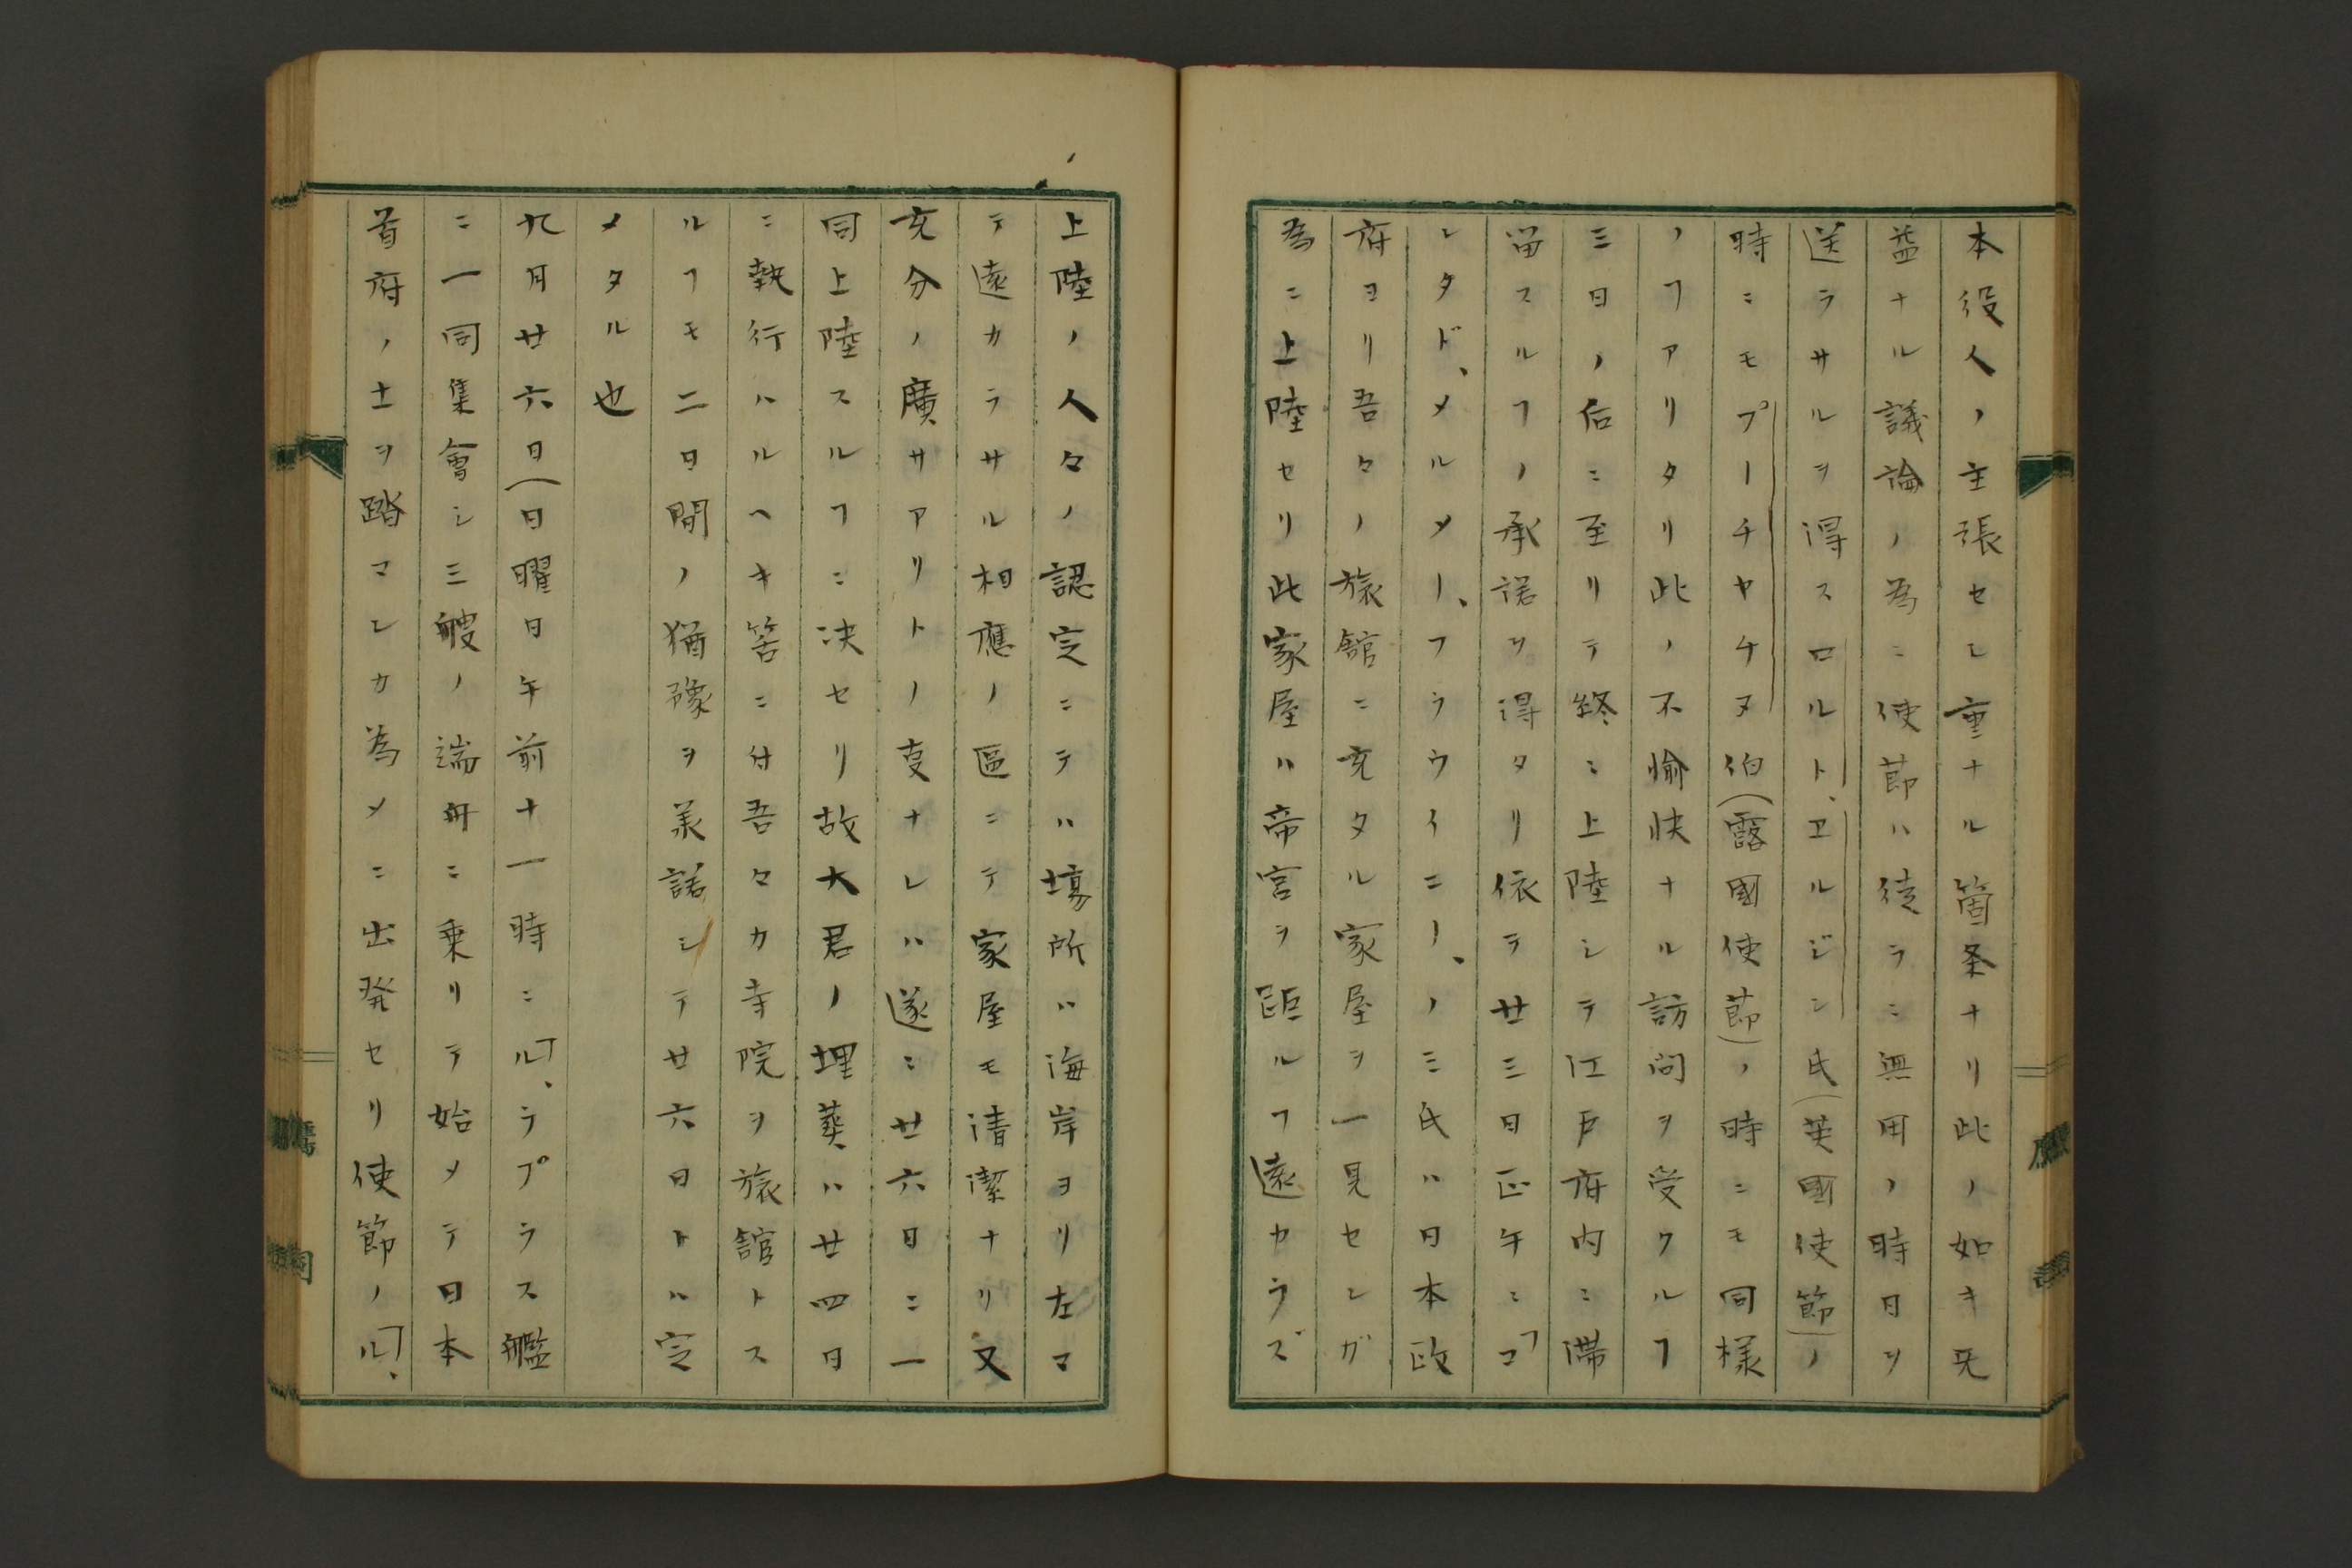 本役人ノ主張セシ重ナル箇条ナリ此ノ如キ无
益ナル議論ノ為ニ使節ハ徒ラニ無用ノ時日ヲ
送ラサルヲ得スロルト、ヱルジン氏(英國使節)ノ
時ニモプーチヤチヌ伯(露國使節)ノ時ニモ同様
ノヿアリタリ此ノ不愉快ナル訪問ヲ受クルヿ
三日ノ后ニ至リテ終ニ上陸シテ江戸府内ニ滞
留スルヿノ承諾ヲ得タリ依テ廿三日正午ニコ
シタド、メルメー、フラウイニー、ノ三氏ハ日本政
府ヨリ吾々ノ旅舘ニ充タル家屋ヲ一見センガ
為ニ上陸セリ此家屋ハ帝宮ヲ距ルヿ遠カラズ
上陸ノ人々ノ認定ニテハ場所ハ海岸ヨリ左マ
テ遠カラサル相應ノ區ニテ家屋モ清潔ナリ又
充分ノ廣サアリトノ叓ナレハ遂ニ廿六日ニ一
同上陸スルヿニ决セリ故大君ノ埋葬ハ廿四日
ニ執行ハルヘキ筈ニ付吾々カ寺院ヲ旅舘トス
ルヿモ二日間ノ猶豫ヲ羕諾シテ廿六日トハ定
メタル也
九月廿六日(日曜日午前十一時ニ「ル、ラプラス艦
ニ一同集會シ三艘ノ端舟ニ乗リテ始メテ日本
首府ノ土ヲ踏マンカ為メニ出発セリ使節ノ「ル、